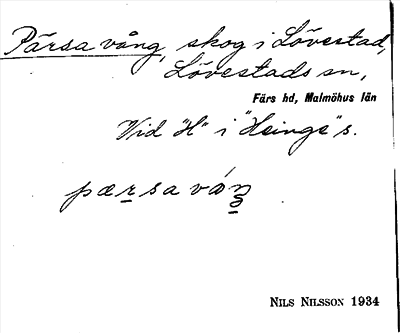 Pärsa vång, skog i Lövestad,
Lövestads sn,
Färs hd, Malmöhus län
Vid "H" i "Heinge"s.
pærsa váŋ
NILS NILSSON 1934